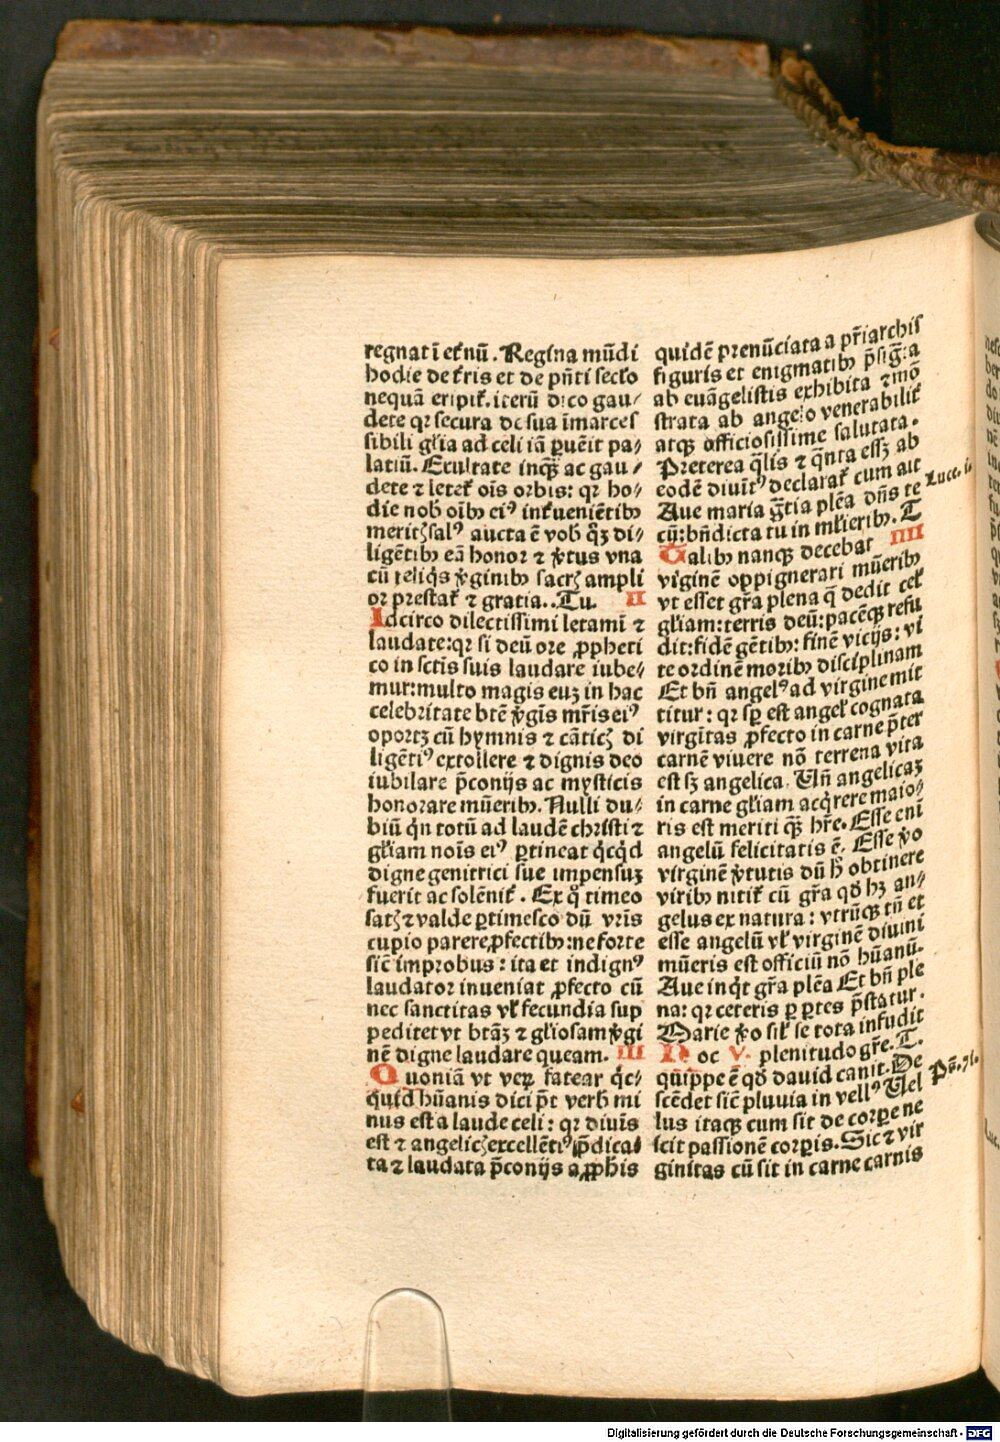 regnat ī et̄nū. Regina mūdi
hodie de t̄ris et de pn̄ti sećlo
nequā eripit̄. iterū dico gau⸗
dete qꝛ secura de sua īmarces
sibili gľia ad celi iā ꝑuēit pa⸗
latiū. Exultate inqꝫ ac gau⸗
dete ⁊ letet̄ oīs orbis: qꝛ ho⸗
die nob̄ oībꝫ eiꝰ int̄ueniētibꝫ
meritꝭ salꝰ aucta ē vob̄ qꝫ di⸗
ligētibꝫ eā honor ⁊ v̄tus vna
cū reliq̇s v̄ginibꝫ sacrꝭ ampli
or prestat̄ ⁊ gratia.. Tu. II
Idcirco dilectissimi letamī ⁊
laudate: qꝛ si deū ore ꝓpheti
co in sctis suis laudare iube⸗
mur: multo magis euꝫ in hac
celebritate btē v̄gīs mr̄is eiꝰ
oportꝫ cū hymnis ⁊ cāticꝭ di
ligētiꝰ extollere ⁊ dignis deo
iubilare p̄conijs ac mysticis
honorare mūeribꝫ. Nulli du⸗
biū q̇n totū ad laudē christi ⁊
gľiam noīs eiꝰ ꝑtineat q̇cq̇d
digne genitrici sue impensuꝫ
fuerit ac solēnit̄. Ex q̊ timeo
satꝭ ⁊ valde ꝑtimesco dū vr̄is
cupio parere ꝓfectibꝫ: ne forte
sic̄ improbus: ita et indignꝰ
laudator inueniat ꝓfecto cū
nec sanctitas vľ fecundia sup
peditet vt btāꝫ ⁊ gľiosam v̄gi
nē digne laudare queam. III
Quoniā vt veꝝ fatear q̇c⸗
quid hūanis dici pt̄ verb̄ mi
nus est a laude celi: qꝛ diuīs
est ⁊ angelicꝭ excellētiꝰ p̄dica⸗
ta ⁊ laudata p̄conijs a ꝓph̄is
quidē prenūciata a pr̄iarchis
figuris et enigmatibꝫ p̄sig̃ta
ab euāgelistis exhibita ⁊ mō
strata ab angelo venerabilit̄
atqꝫ officiosissime salutata.
Preterea q̄lis ⁊ q̄nta essꝫ ab
eodē diuīt̉ꝰ declarat̄ cum ait
Aue maria gr̄tia plēa dn̄s te
Luce. i.
cū: bn̄dicta tu in mľieribꝫ. T
Talibꝫ nanqꝫ decebat IIII
virginē oppignerari mūeribꝫ
vt esset gr̄a plena q̄ dedit cel̄
gľiam: terris deū: pacēqꝫ refu
dit: fidē gētibꝫ: finē vicijs: vi
te ordinē moribꝫ disciplinam
Et bn̄ angelꝰ ad virginē mit
titur: qꝛ sꝑ est angel̄ cognata
virgītas ꝓfecto in carne p̄ter
carnē viuere nō terrena vita
est sꝫ angelica. Vn̄ angelicaꝫ
in carne gľiam acq̇rere maio⸗
ris est meriti qꝫ hr̄e. Esse eni
angelū felicitatis ē. Esse v̊o
virginē v̄tutis dū h̊ obtinere
viribꝫ nitit̄ cū gr̄a qđ hꝫ an⸗
gelus ex natura: vtrūqꝫ tn̄ et
esse angelū vľ virginē diuini
mūeris est officiū nō hūanū.
Aue inq̇t gr̄a plēa Et bn̄ ple
na: qꝛ ceteris ꝑ ꝑtes p̄statur.
Marie v̊o sil̄ se tota infudit
Hoc V. plenitudo gr̄e. T.
quippe ē qđ dauid canit. De
Ps̄. 71.
scēdet sic̄ pluuia in vellꝰ Vel
lus itaqꝫ cum sit de corꝑe ne
scit passionē corꝑis. Sic ⁊ vir
ginitas cū sit in carne carnis
Digitalisierung gefördert durch die Deutsche Forschungsgemeinschaft - DFG